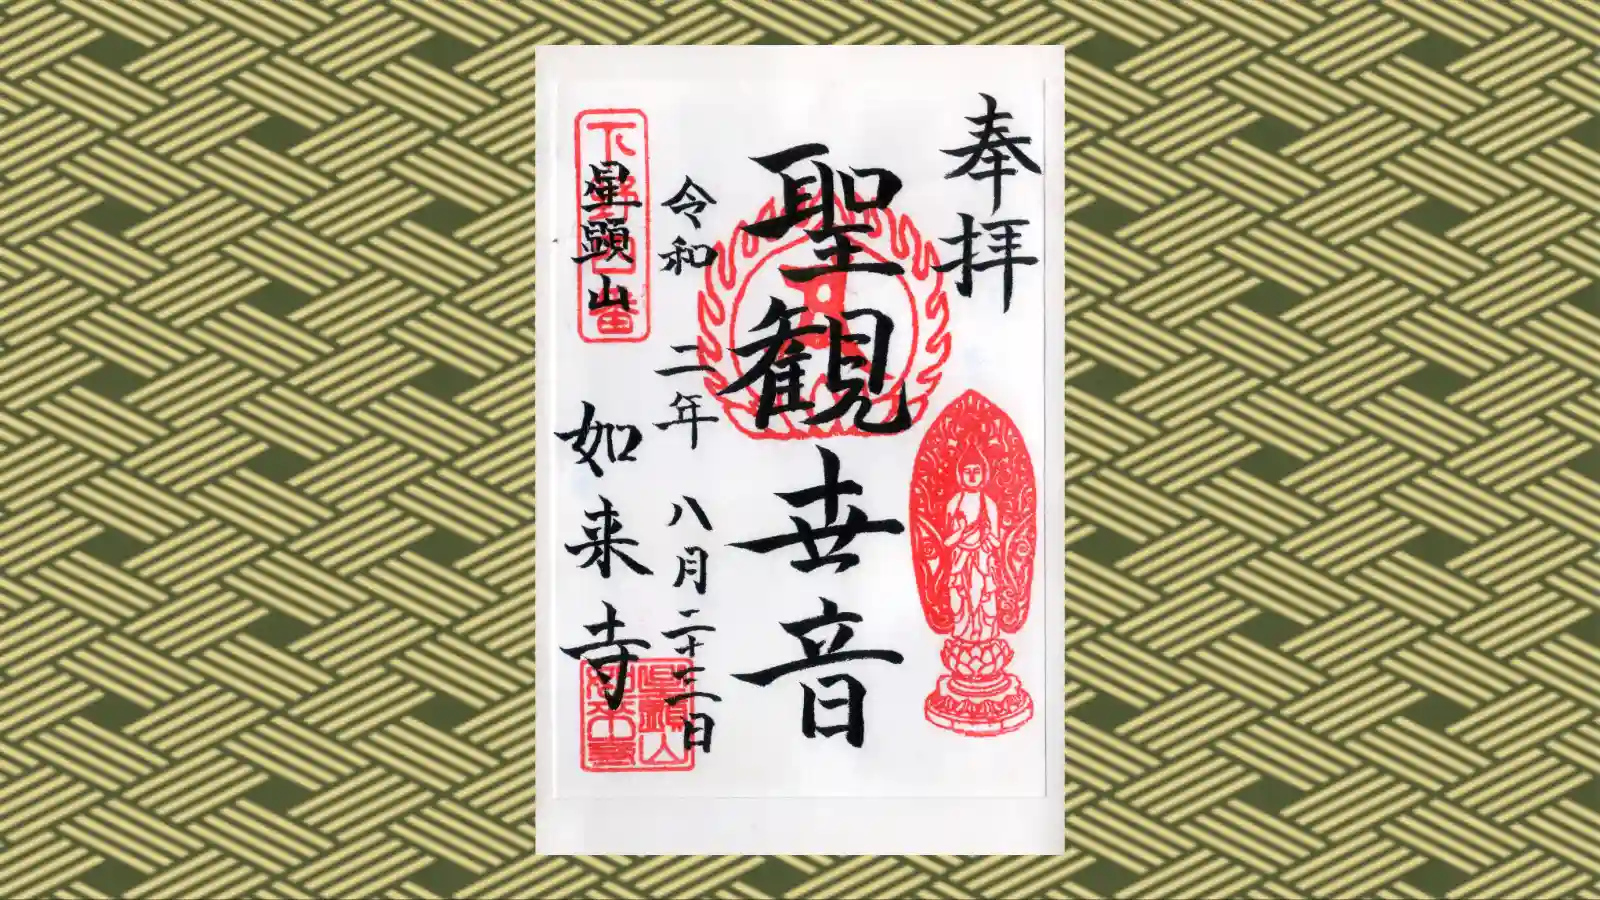 奉拝
聖観世音
令和二年八月二十三日
星顕山
如来寺